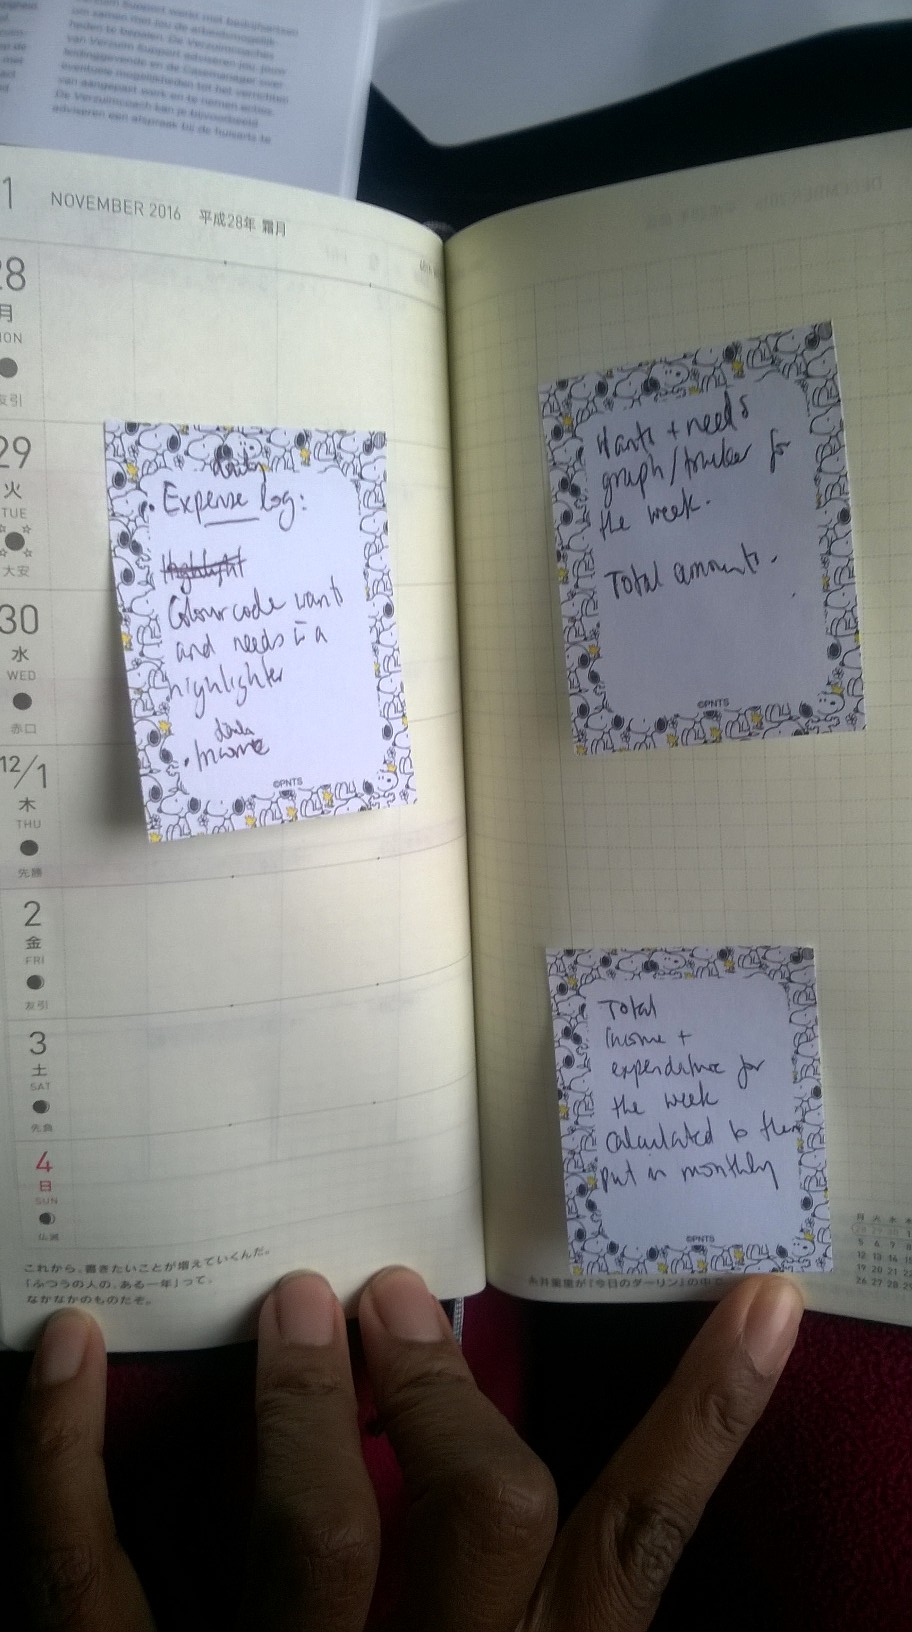 um samen met jou de arbeidsmogelijk-
heden te bepalen. De Verzuimcoaches
van Verzuim Support adviseren jou, jouw
leidinggevende en de Casemanager over
eventuele mogelijkheden tot het verrichten
van aangepast werk en te nemen acties.
De Verzuimcoach kan je bijvoorbeeld
adviseren een afspraak bij de huisarts te
1 NOVEMBER 2016 平成28年 霜月
28
月
MON
友引
29
火
TUE
大安
30
水
WED
赤口
12/1
木
THU
先勝
2
金
FRI
友引
3
土
SAT
先負
4
日
SUN
仏滅
daily
• Expense log:
Highlight
Colour code want
and needs in a
highlighter
daily
• Income
©PNTS
これから、書きたいことが増えていくんだ。
「ふつうの人の、ある一年」って、
なかなかのものだぞ。
DECEMBER 2016
Wants + needs
graph/tracker for
the week.
Total amounts.
©PNTS
Total
Income +
expenditure for
the week
calculated to then
put in monthly
©PNTS
糸井重里が「今日のダーリン」の中で
月 火 水 木
5 6 7 8
12 13 14 15
19 20 21 22
26 27 28 29